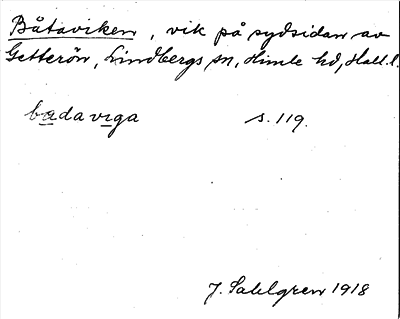 Båtaviken, vik på sydsidan av
Getterön, Lindbergs sn, Himle hd, Hall. l.
badaviga s. 119.
J. Sahlgren 1918